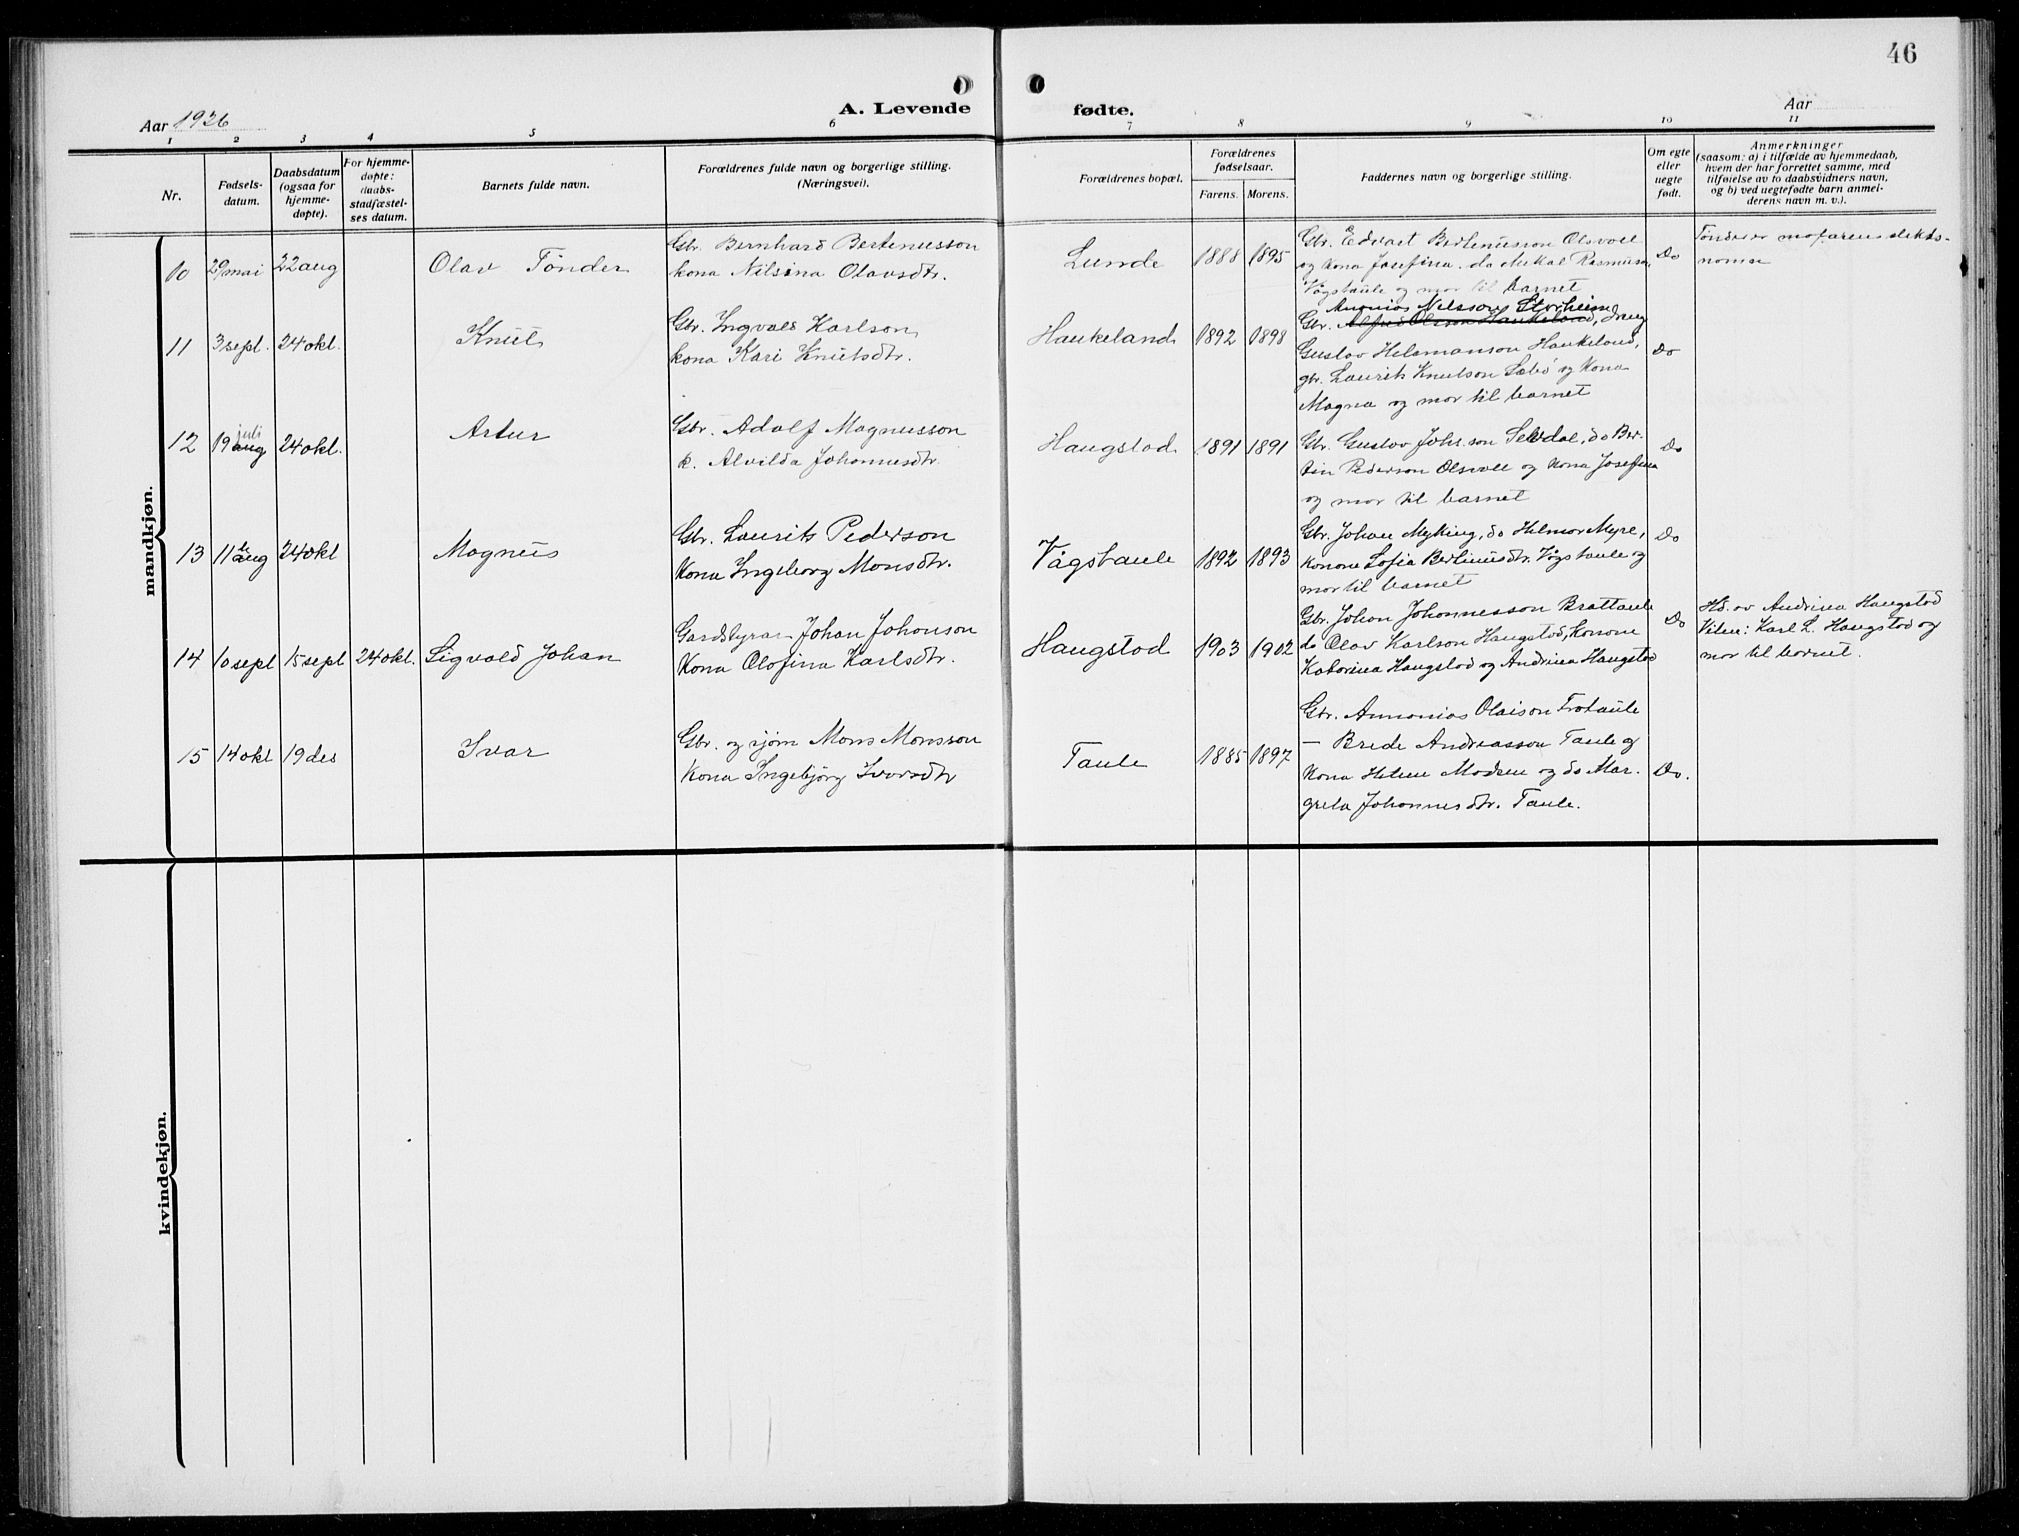 46
Aar 1926
A. Levende
fødte.
Aar
1 2 3 4 5 6 7 8 9 10 11
Nr.
Fødsels-
datum.
Daabsdatum
(ogsaa for
hjemme-
døpte).
For hjemme-
døpte:
daabs-
stadfæstel-
ses datum.
Barnets fulde navn.
Forældrenes fulde navn og borgerlige stilling.
(Næringsvei).
Forældrenes bopæl.
Forældrenes
fødselsaar.
Farens. Morens.
Faddernes navn og borgerlige stilling.
Om egte
eller
uegte
født.
Anmerkninger
(saasom: a) i tilfælde av hjemmedaab,
hvem der har forrettet samme, med
tilføielse av to daabsvidners navn,
og b) ved uegtefødte barn anmel-
derens navn m. v.).
mandkjøn.
10 29 mai 22 aug Olav Tønder
Gbr. Bernhard Bertinusson
kona Nilsina Olavsdtr.
Lunde 1888 1895
Gbr. Edvart Bertinusson Olsvoll
og kona Josefina. do Mikal Rasmusson
Vågstaule og mor til barnet
Do
Tønder er mofarens slekts-
nomn
11 3 sept. 24 okt. Knut
Gbr. Ingvald Karlson
kona Kari Knutsdtr.
Haukeland 1892 1898
Nilsson Storheim
Gbr. Alfred Olsson Haukeland, dreng
Gustav Helmanson Haukeland,
gbr. Laurits Knutson Sæbø og kona
Magna og mor til barnet
Do
12 19 juli aug 24 okt. Artur
Gbr. Adolf Magnusson
k. Alvilda Johannesdtr.
Haugstad 1891 1891
Gbr. Gustav Johsson Selvdal, do Ber-
tin Pederson Olsvoll og kona Josefina
og mor til barnet
Do
13 11 aug 24 okt Magnus
Gbr. Laurits Pederson
Kona Ingeborg Monsdtr.
Vågstaule 1892 1893
Gbr. Johan Myking, do Helmer Myre,
konone Sofia Bertinusdtr. Vågstaule og
mor til barnet
Do
14 10 sept 15 sept 24 okt. Sigvald Johan
Gardstyrar Johan Johanson
Kona Olofina Karlsdtr.
Haugstad 1903 1902
Gbr. Johan Johannesson Brattaule
do Olav Karlson Haugstad, konone
Katarina Haugstad og Andrina Haugstad
Do
Hd. av Andrina Haugstad
Vitne: Karl L. Haugstad og
mor til barnet.
15 14 okt 19 des Ivar
Gbr. og sjøm Mons Monsson
Kona Ingebjørg Ivarsdtr
Taule 1885 1897
Gbr. Ananias Olaison Trotaule
— Brede Andreasson Taule og
kona Helene Madsen og do Mar-
greta Johannesdtr. Taule.
Do.
kvindekjøn.